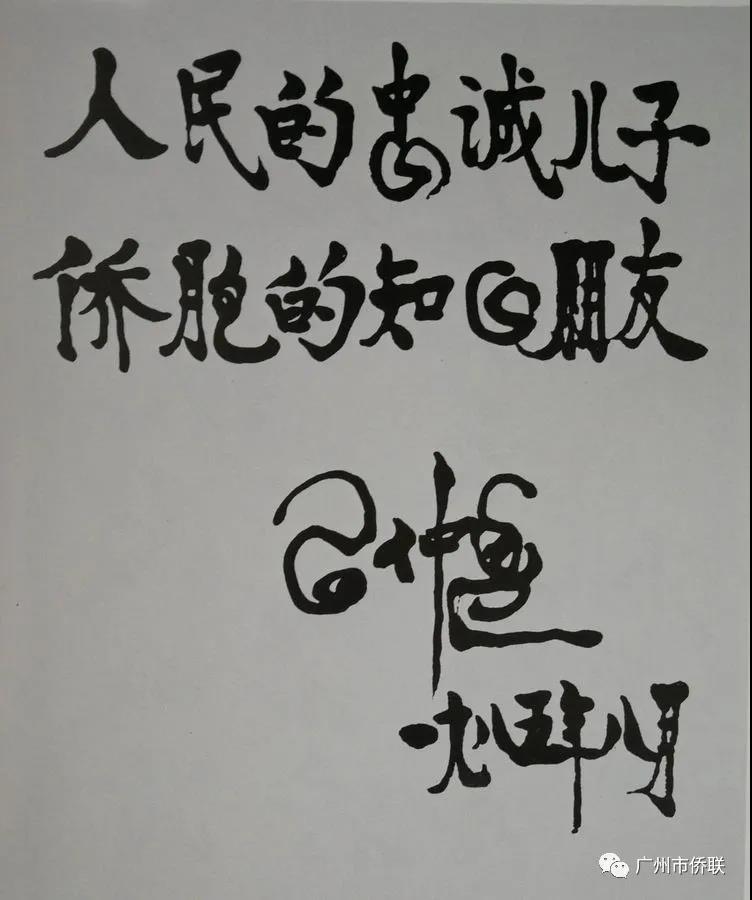 人民的忠诚儿子
侨胞的知心朋友
一九八五年八月
广州市侨联